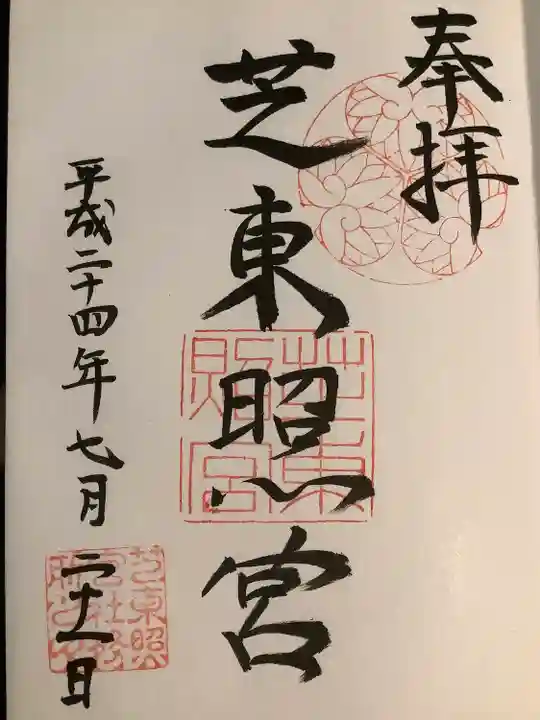 奉拝
芝東照宮
平成二十四年七月二十一日
芝東照宮
芝東照宮社務所之印